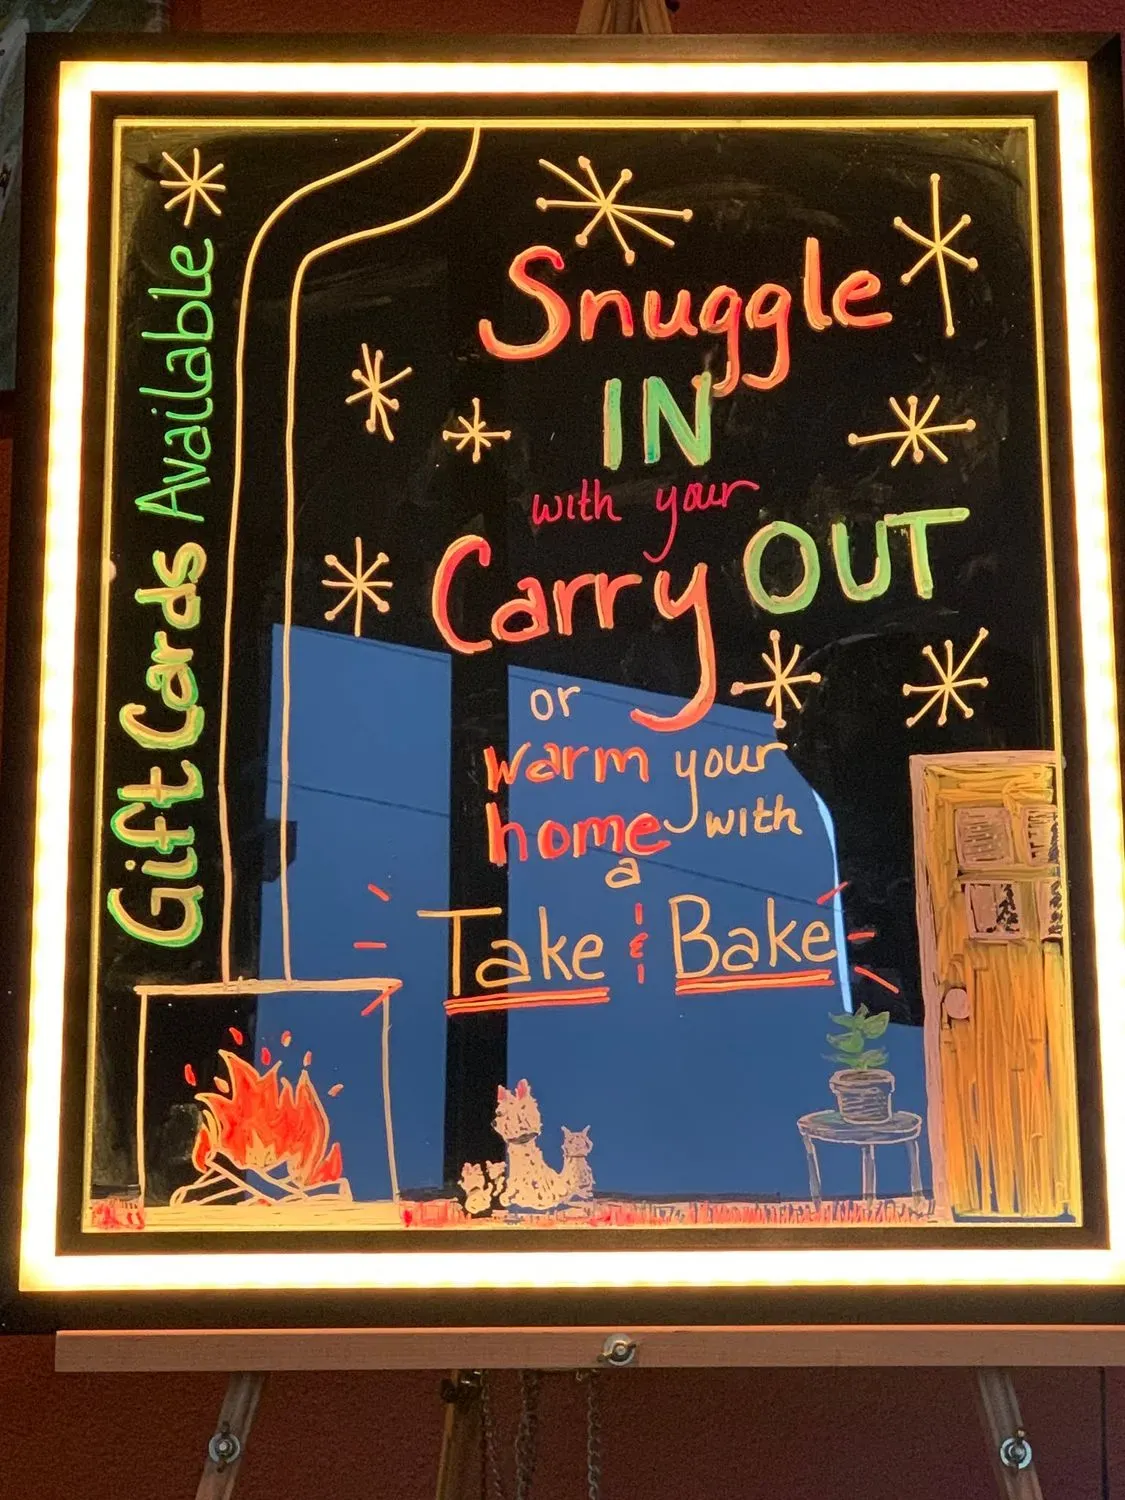 Gift Cards Available
Snuggle
IN
with your
Carry OUT
or
warm your
home with
a
Take & Bake